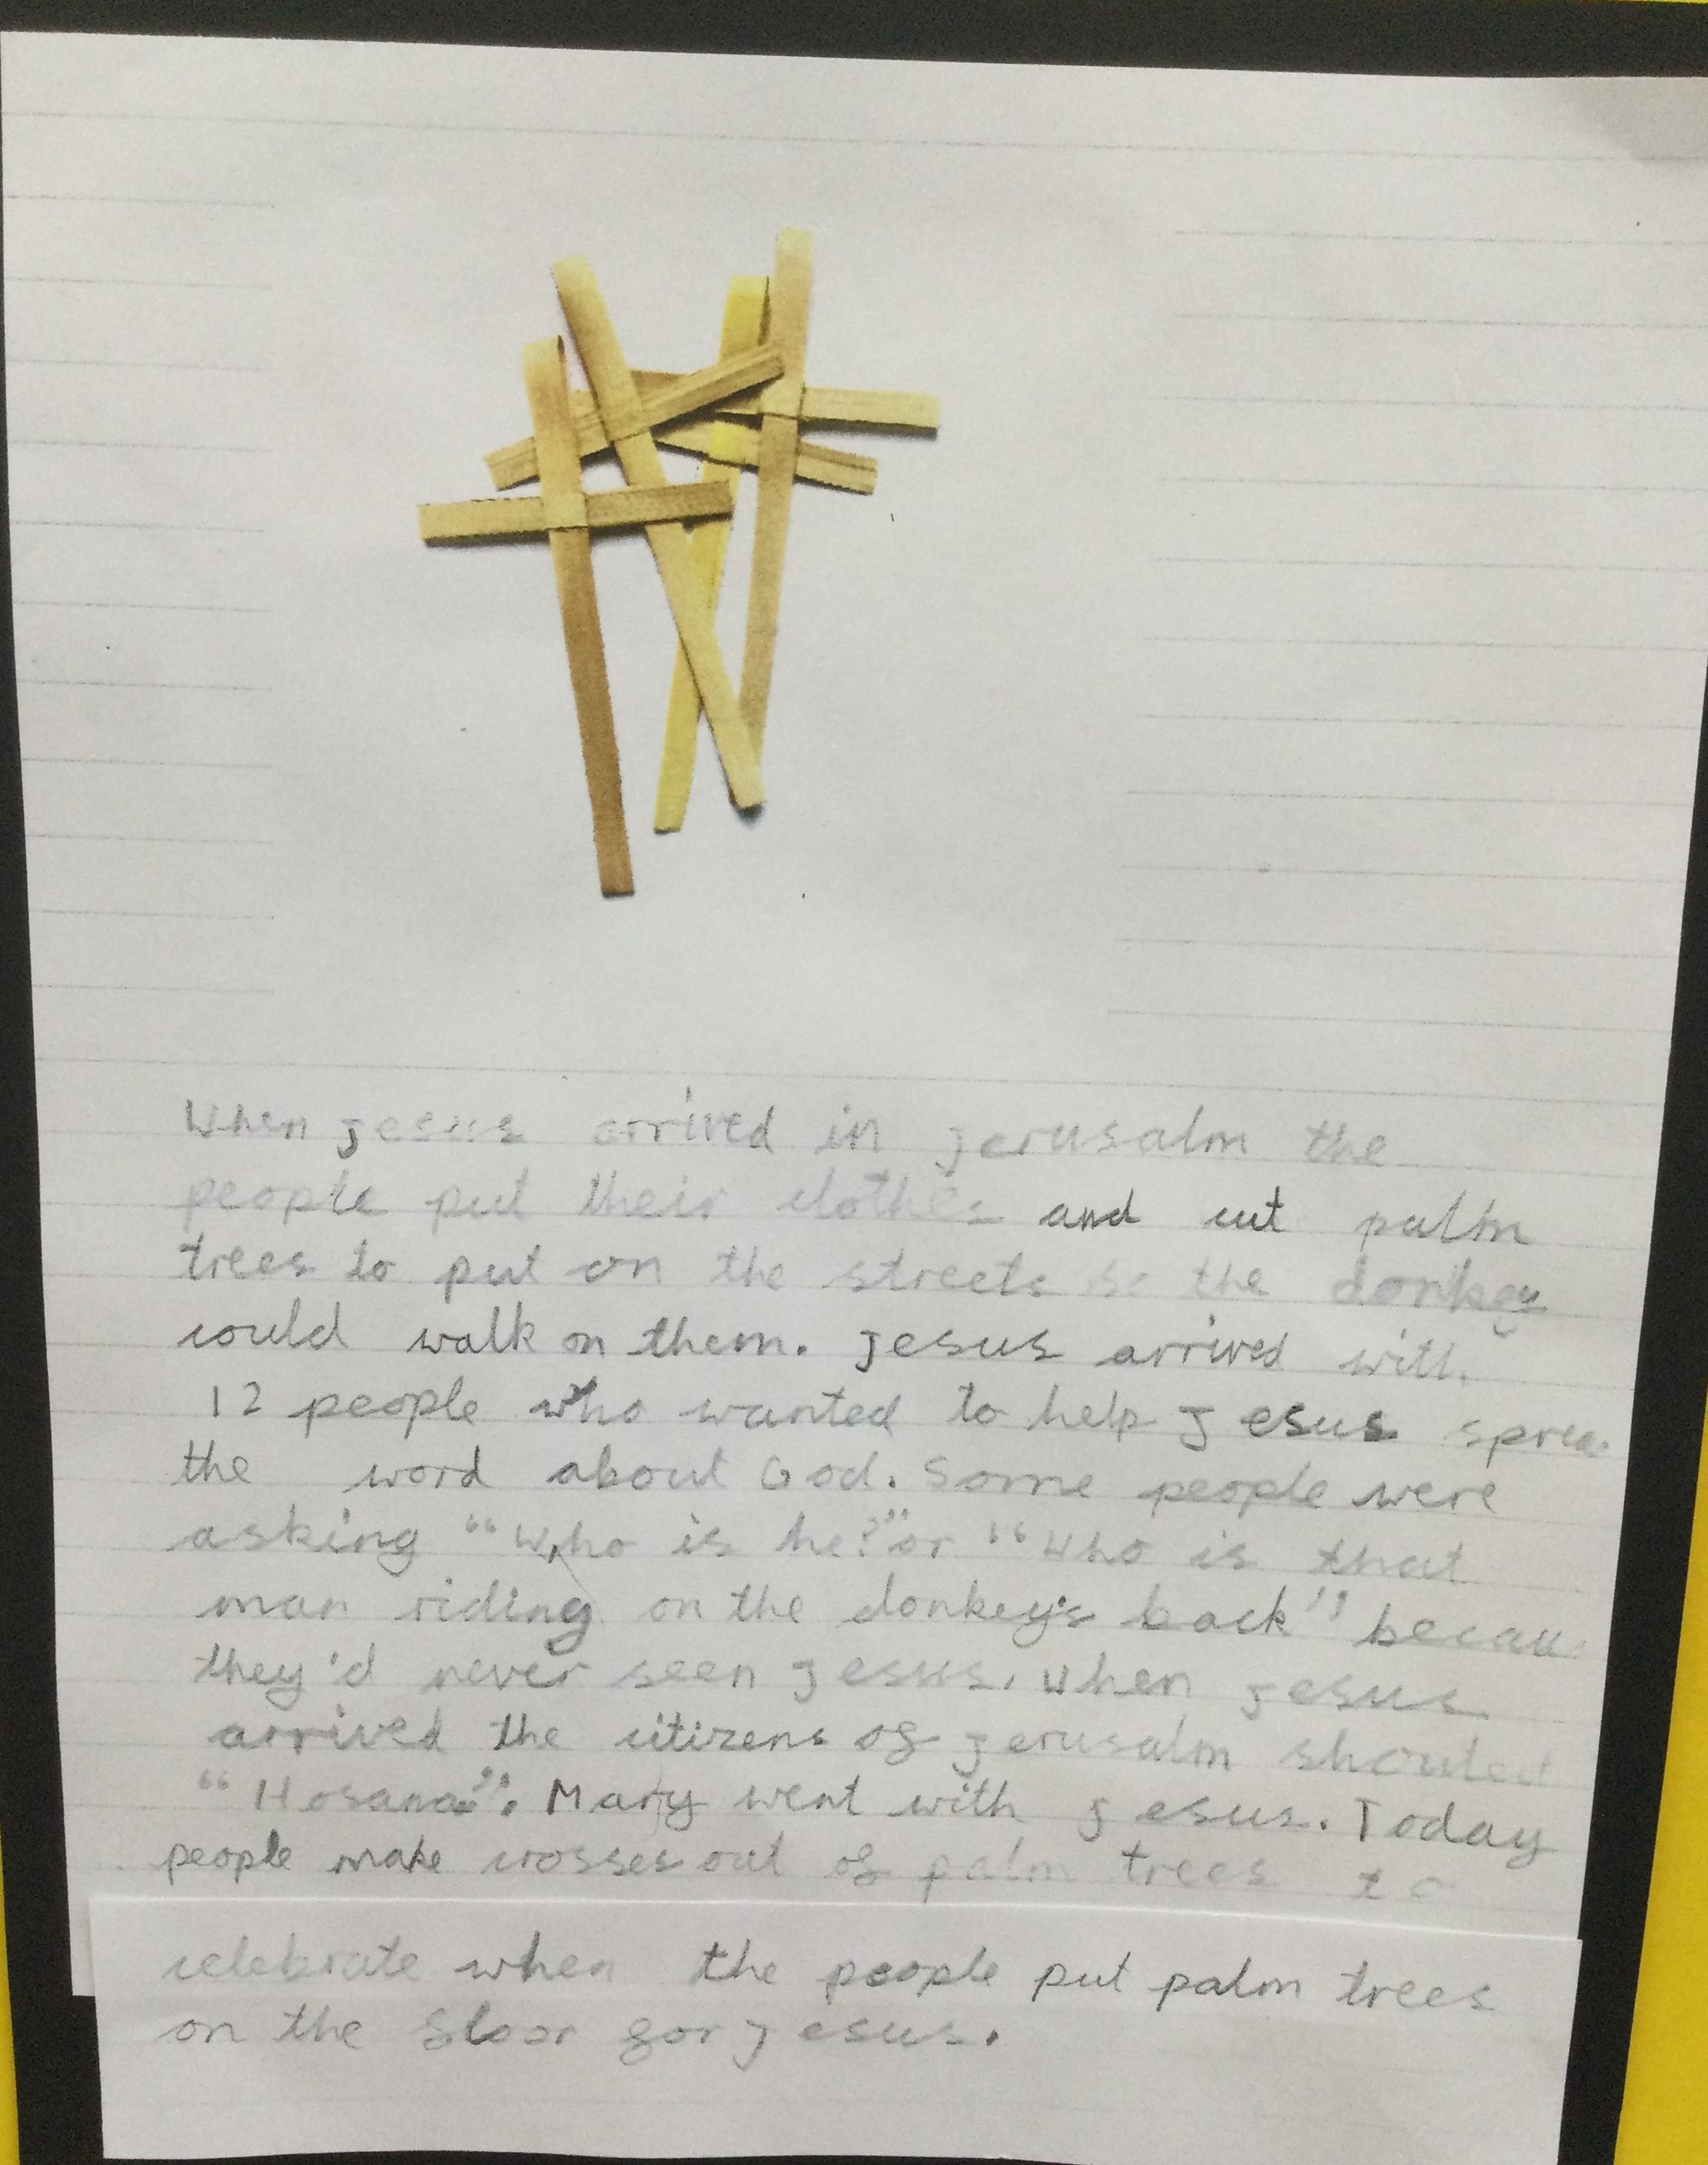 When Jesus arrived in Jerusalm the
people put their clothes and cut palm
trees to put on the streets so the donkey
could walk on them. Jesus arrived with
12 people who wanted to help Jesus sprea
the word about God. Some people were
asking "Who is he?" or "Who is that
man riding on the donkey's back" becau
they'd never seen Jesus. When Jesus
arrived the citizens of Jerusalm shouted
"Hosana". Mary went with Jesus. Today
people make crosses out of palm trees to
celebrate when the people put palm trees
on the floor for Jesus.